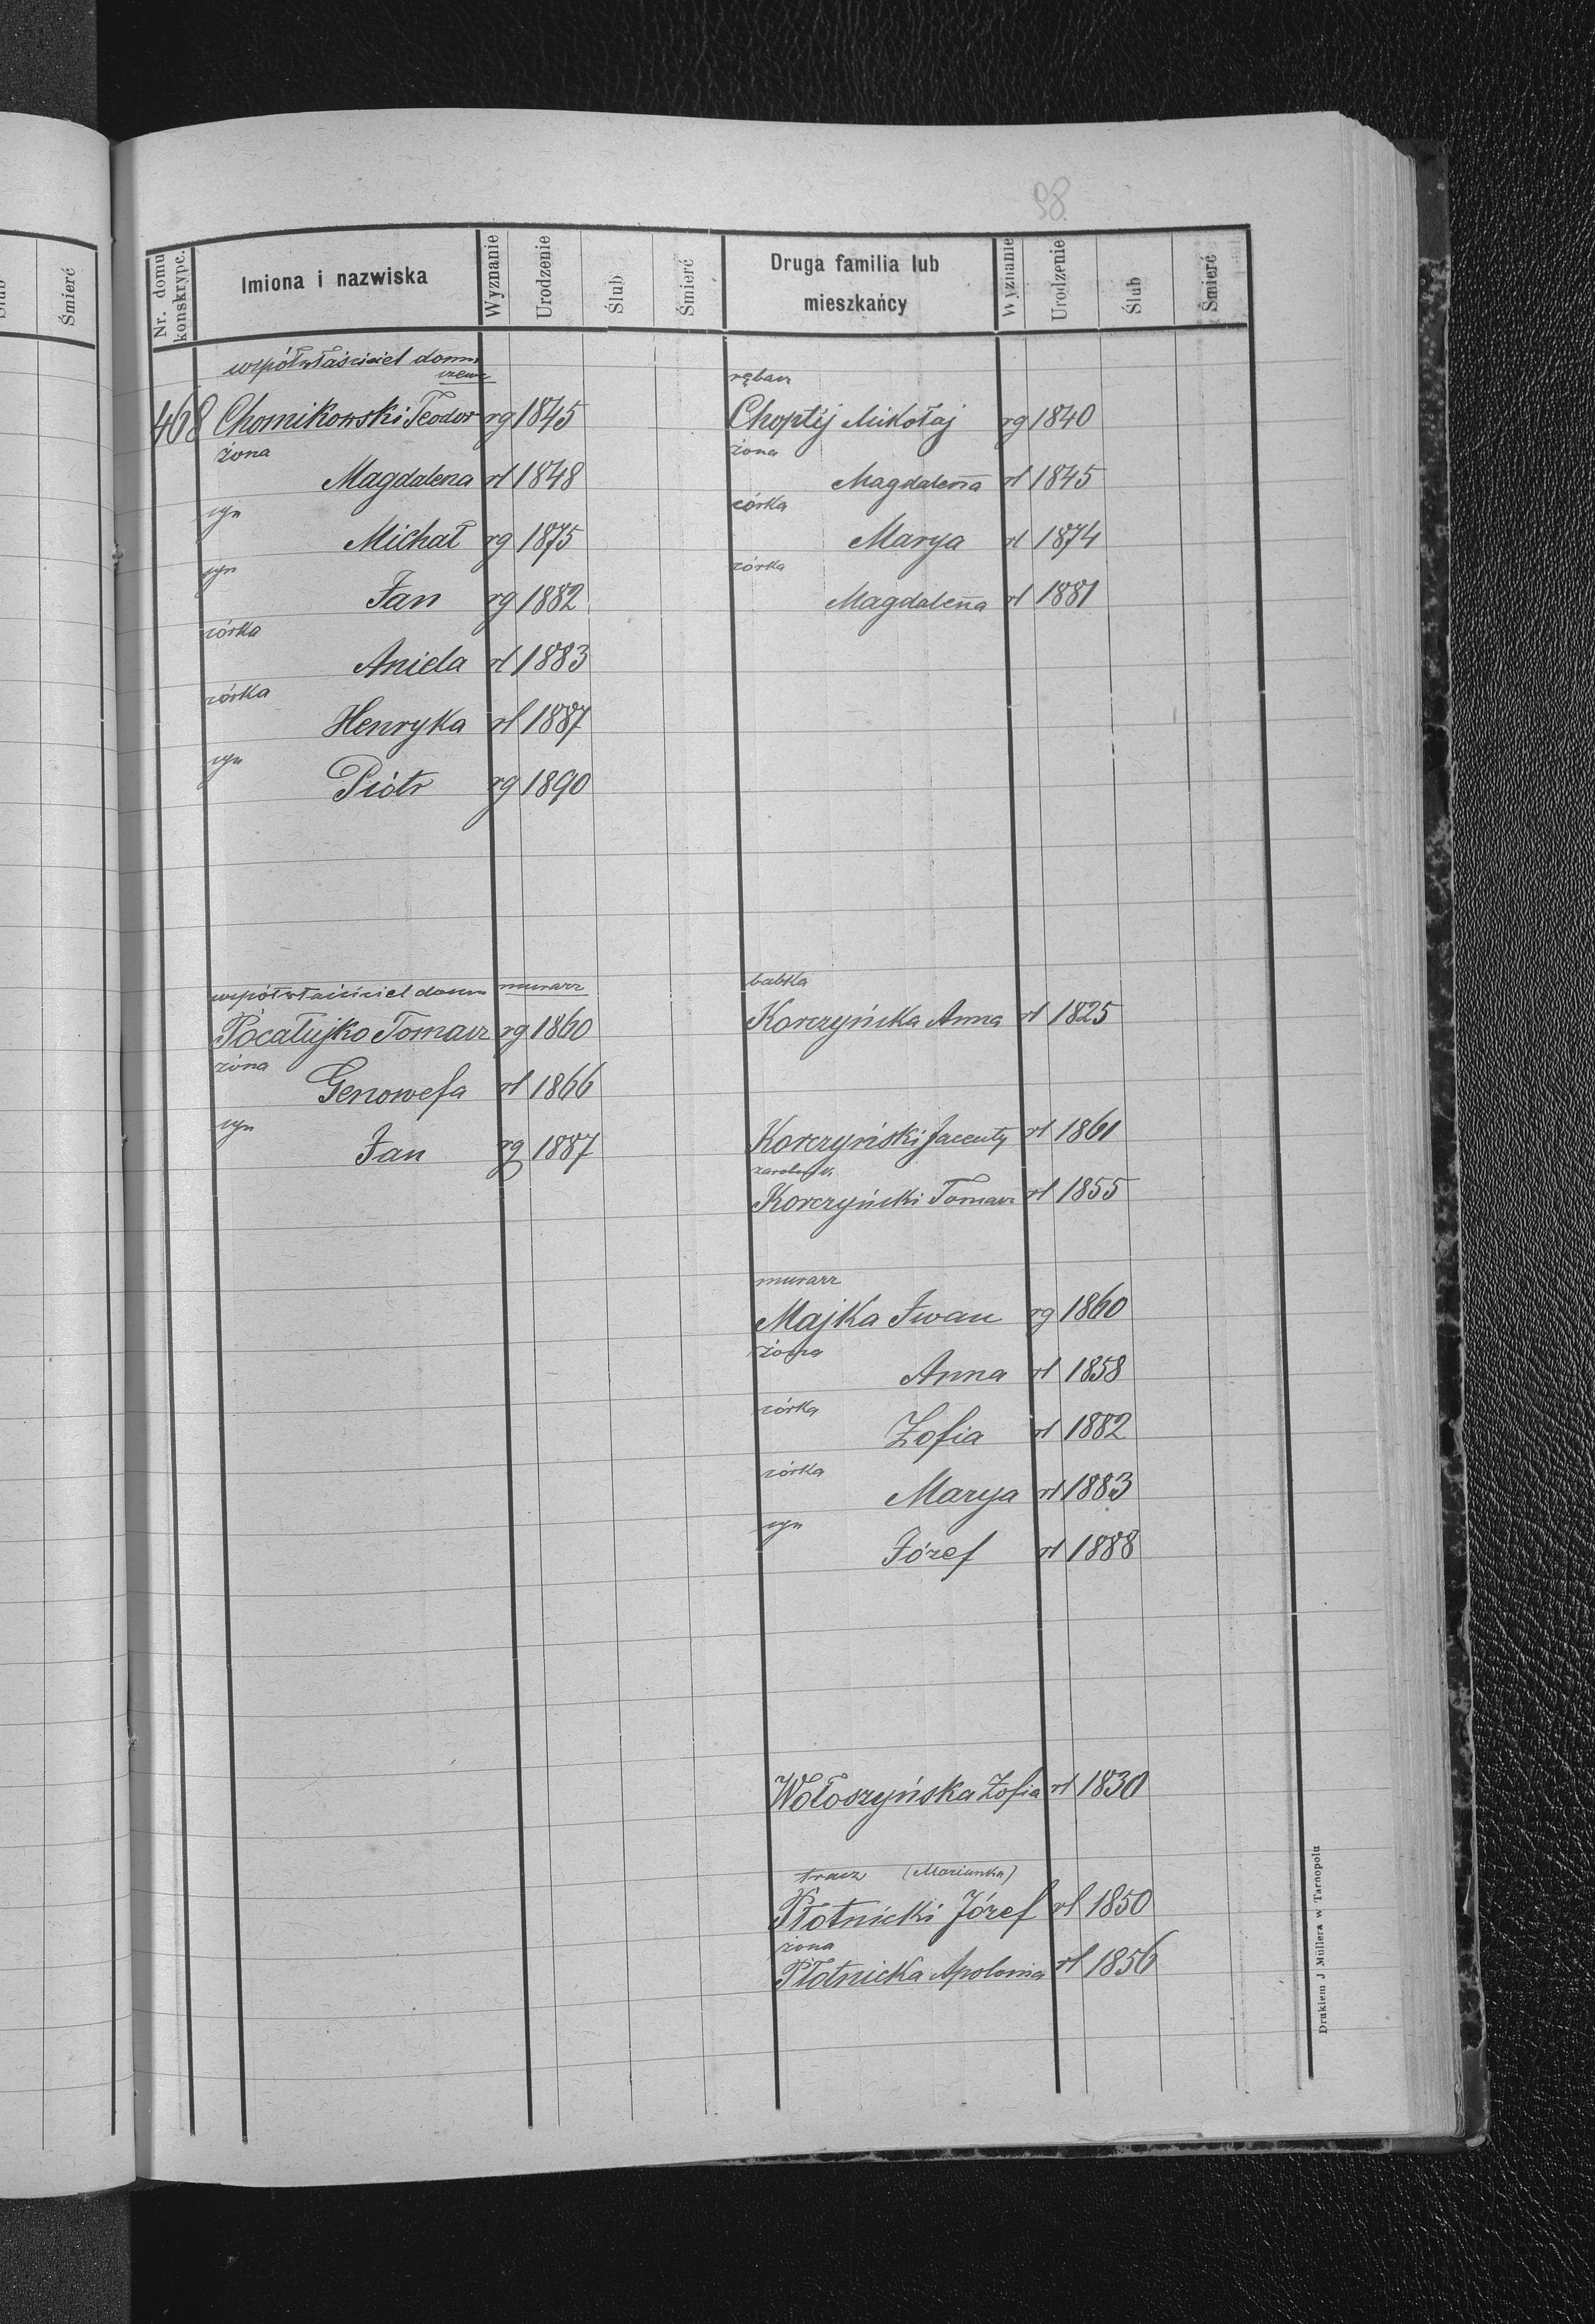 98
Nr. domu konskrypc.
Imiona i nazwiska
Wyznanie
Urodzenie
Ślub
Śmierć
Druga familia lub
mieszkańcy
Wyznanie
Urodzenie
Ślub
Śmierć
Ślub
Śmierć
współwłaściciel domu
szewc
468 Chomikowski Teodor rg 1845
żona
Magdalena rł 1848
syn
Michał rg 1875
syn
Jan rg 1882
córka
Aniela rł 1883
córka
Henryka rł 1887
syn
Piótr rg 1890
współwłaściciel domu murarz
Pocałujko Tomasz rg 1860
żona
Genowefa rł 1866
syn
Jan rg 1887
rębacz
Choptij Mikołaj rg 1840
żona
Magdalena rł 1845
córka
Marya rł 1874
córka
Magdalena rł 1881
babka
Korczyńska Anna rł 1825
Korczyński Jacenty rł 1861
Korczyński Tomasz rł 1855
murarz
Majka Iwan rg 1860
żona
Anna rł 1858
córka
Zofia rł 1882
córka
Marya rł 1883
syn
Józef rł 1888
Wołoszyńska Zofia rł 1830
tracz (Mariunka)
Płotnicki Józef rł 1850
żona
Płotnicka Apolonia rł 1856
Drukiem J Müllera w Tarnopolu